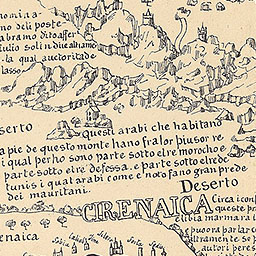 no deli poste
abramo Dito affer
iulio solin dice alhame
la qual auctoritade
lasso
serto
Questi arabi che habitano
apie de questo monte hano fra lor piu sor re
i qual per ho sono parte sotto el re morocho e
parte sotto el re de fessa. e parte sotto el re de
tunis i qual arabi come e noto fano gran prede
dei mauritani.
Deserto
CIRENAICA
Circa icon
queste pr
Libia marmara i
enaica
puo ora parlar co
ultramente se p
autori pere s